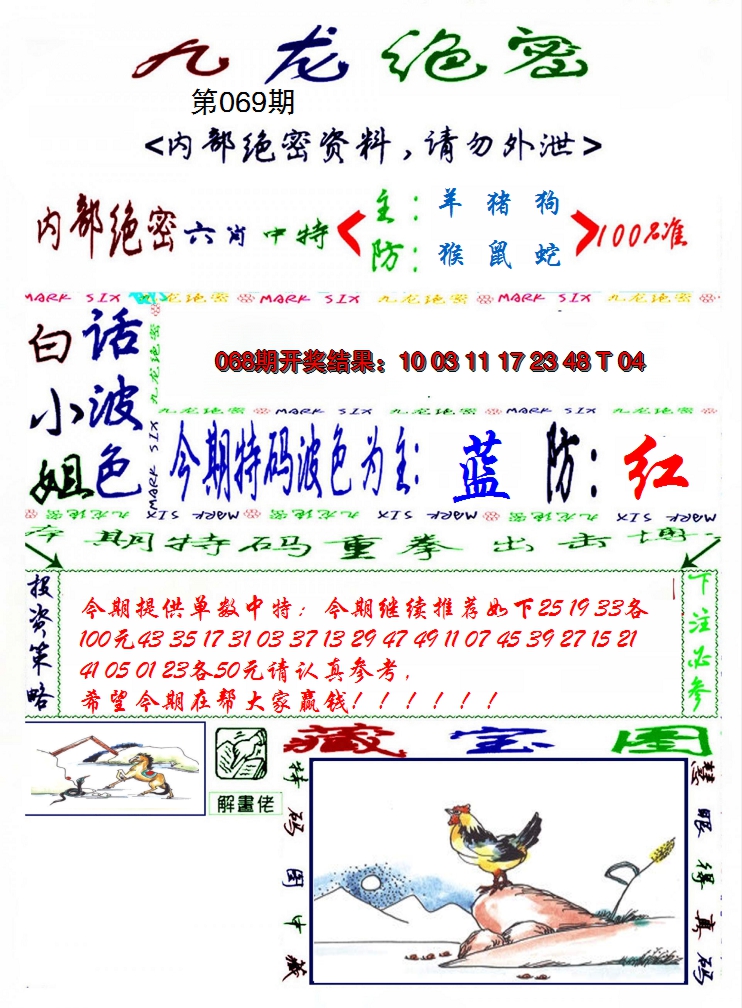 九龙绝密
第069期
<内部绝密资料,请勿外泄>
内部绝密六肖中特
主:羊 猪 狗
防:猴 鼠 蛇
100%准
MARK SIX 九龙绝密 MARK SIX 九龙绝密 MARK SIX 九龙绝密
白小姐
话波色
九龙绝密 MARK SIX
068期开奖结果:10 03 11 17 23 48 T 04
九龙绝密 MARK SIX 九龙绝密 MARK SIX 九龙绝密
今期特码波色为主:蓝 防:红
MARK SIX 九龙绝密 MARK SIX 九龙绝密 MARK SIX
本期特码重拳出击博
投资策略
今期提供单数中特:今期继续推荐如下25 19 33各
100元43 35 17 31 03 37 13 29 47 49 11 07 45 39 27 15 21
41 05 01 23各50元请认真参考,
希望今期在帮大家赢钱!!!!!!
下注必参
解畫佬
藏宝图
特码图中藏
慧眼得真码